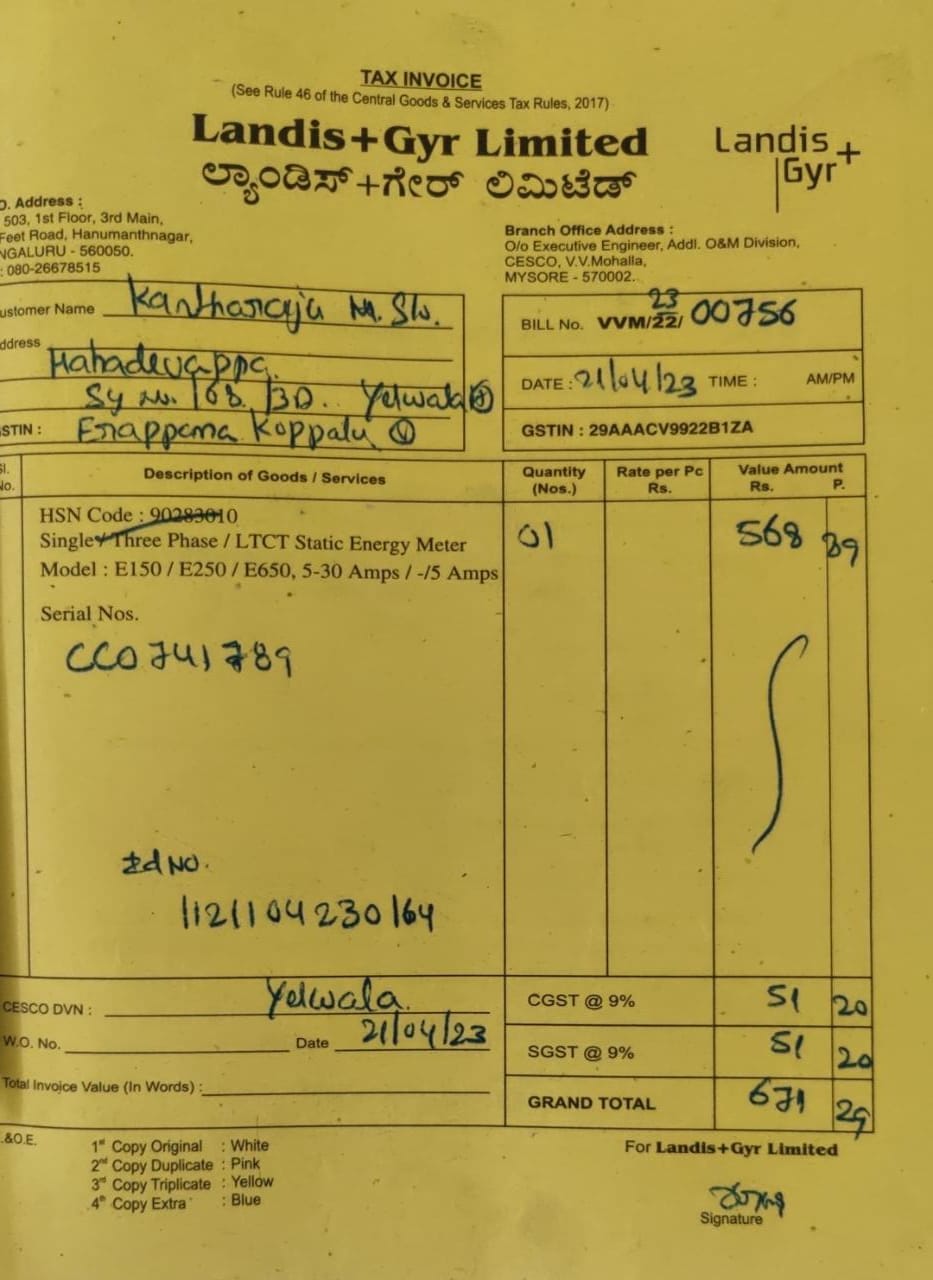 TAX INVOICE
(See Rule 46 of the Central Goods & Services Tax Rules, 2017)
Landis+Gyr Limited
ಲ್ಯಾಂಡಿಸ್+ಗೇರ್ ಲಿಮಿಟೆಡ್
Landis+
Gyr
O. Address :
503, 1st Floor, 3rd Main,
Feet Road, Hanumanthnagar,
NGALURU - 560050.
: 080-26678515
Branch Office Address :
O/o Executive Engineer, Addl. O&M Division,
CESCO, V.V.Mohalla,
MYSORE - 570002.
ustomer Name Kantharaju M. S/o.
ddress Mahadevappa.
Sy No. 108/3D. Yelwala
STIN : Enappana Koppalu
BILL No. VVM/22/ 23 00756
DATE : 21/04/23 TIME : AM/PM
GSTIN : 29AAACV9922B1ZA
Sl. No. Description of Goods / Services Quantity (Nos.) Rate per Pc Rs. Value Amount Rs. P.
HSN Code : 90283010
Single / Three Phase / LTCT Static Energy Meter 01 568 89
Model : E150 / E250 / E650, 5-30 Amps / -/5 Amps
Serial Nos.
CC0741789
Id NO.
1121104230164
CESCO DVN : Yelwala.
W.O. No. Date 21/04/23
Total Invoice Value (In Words) :
CGST @ 9% 51 20
SGST @ 9% 51 20
GRAND TOTAL 671 29
.&O.E.
1st Copy Original : White
2nd Copy Duplicate : Pink
3rd Copy Triplicate : Yellow
4th Copy Extra : Blue
For Landis+Gyr Limited
Signature